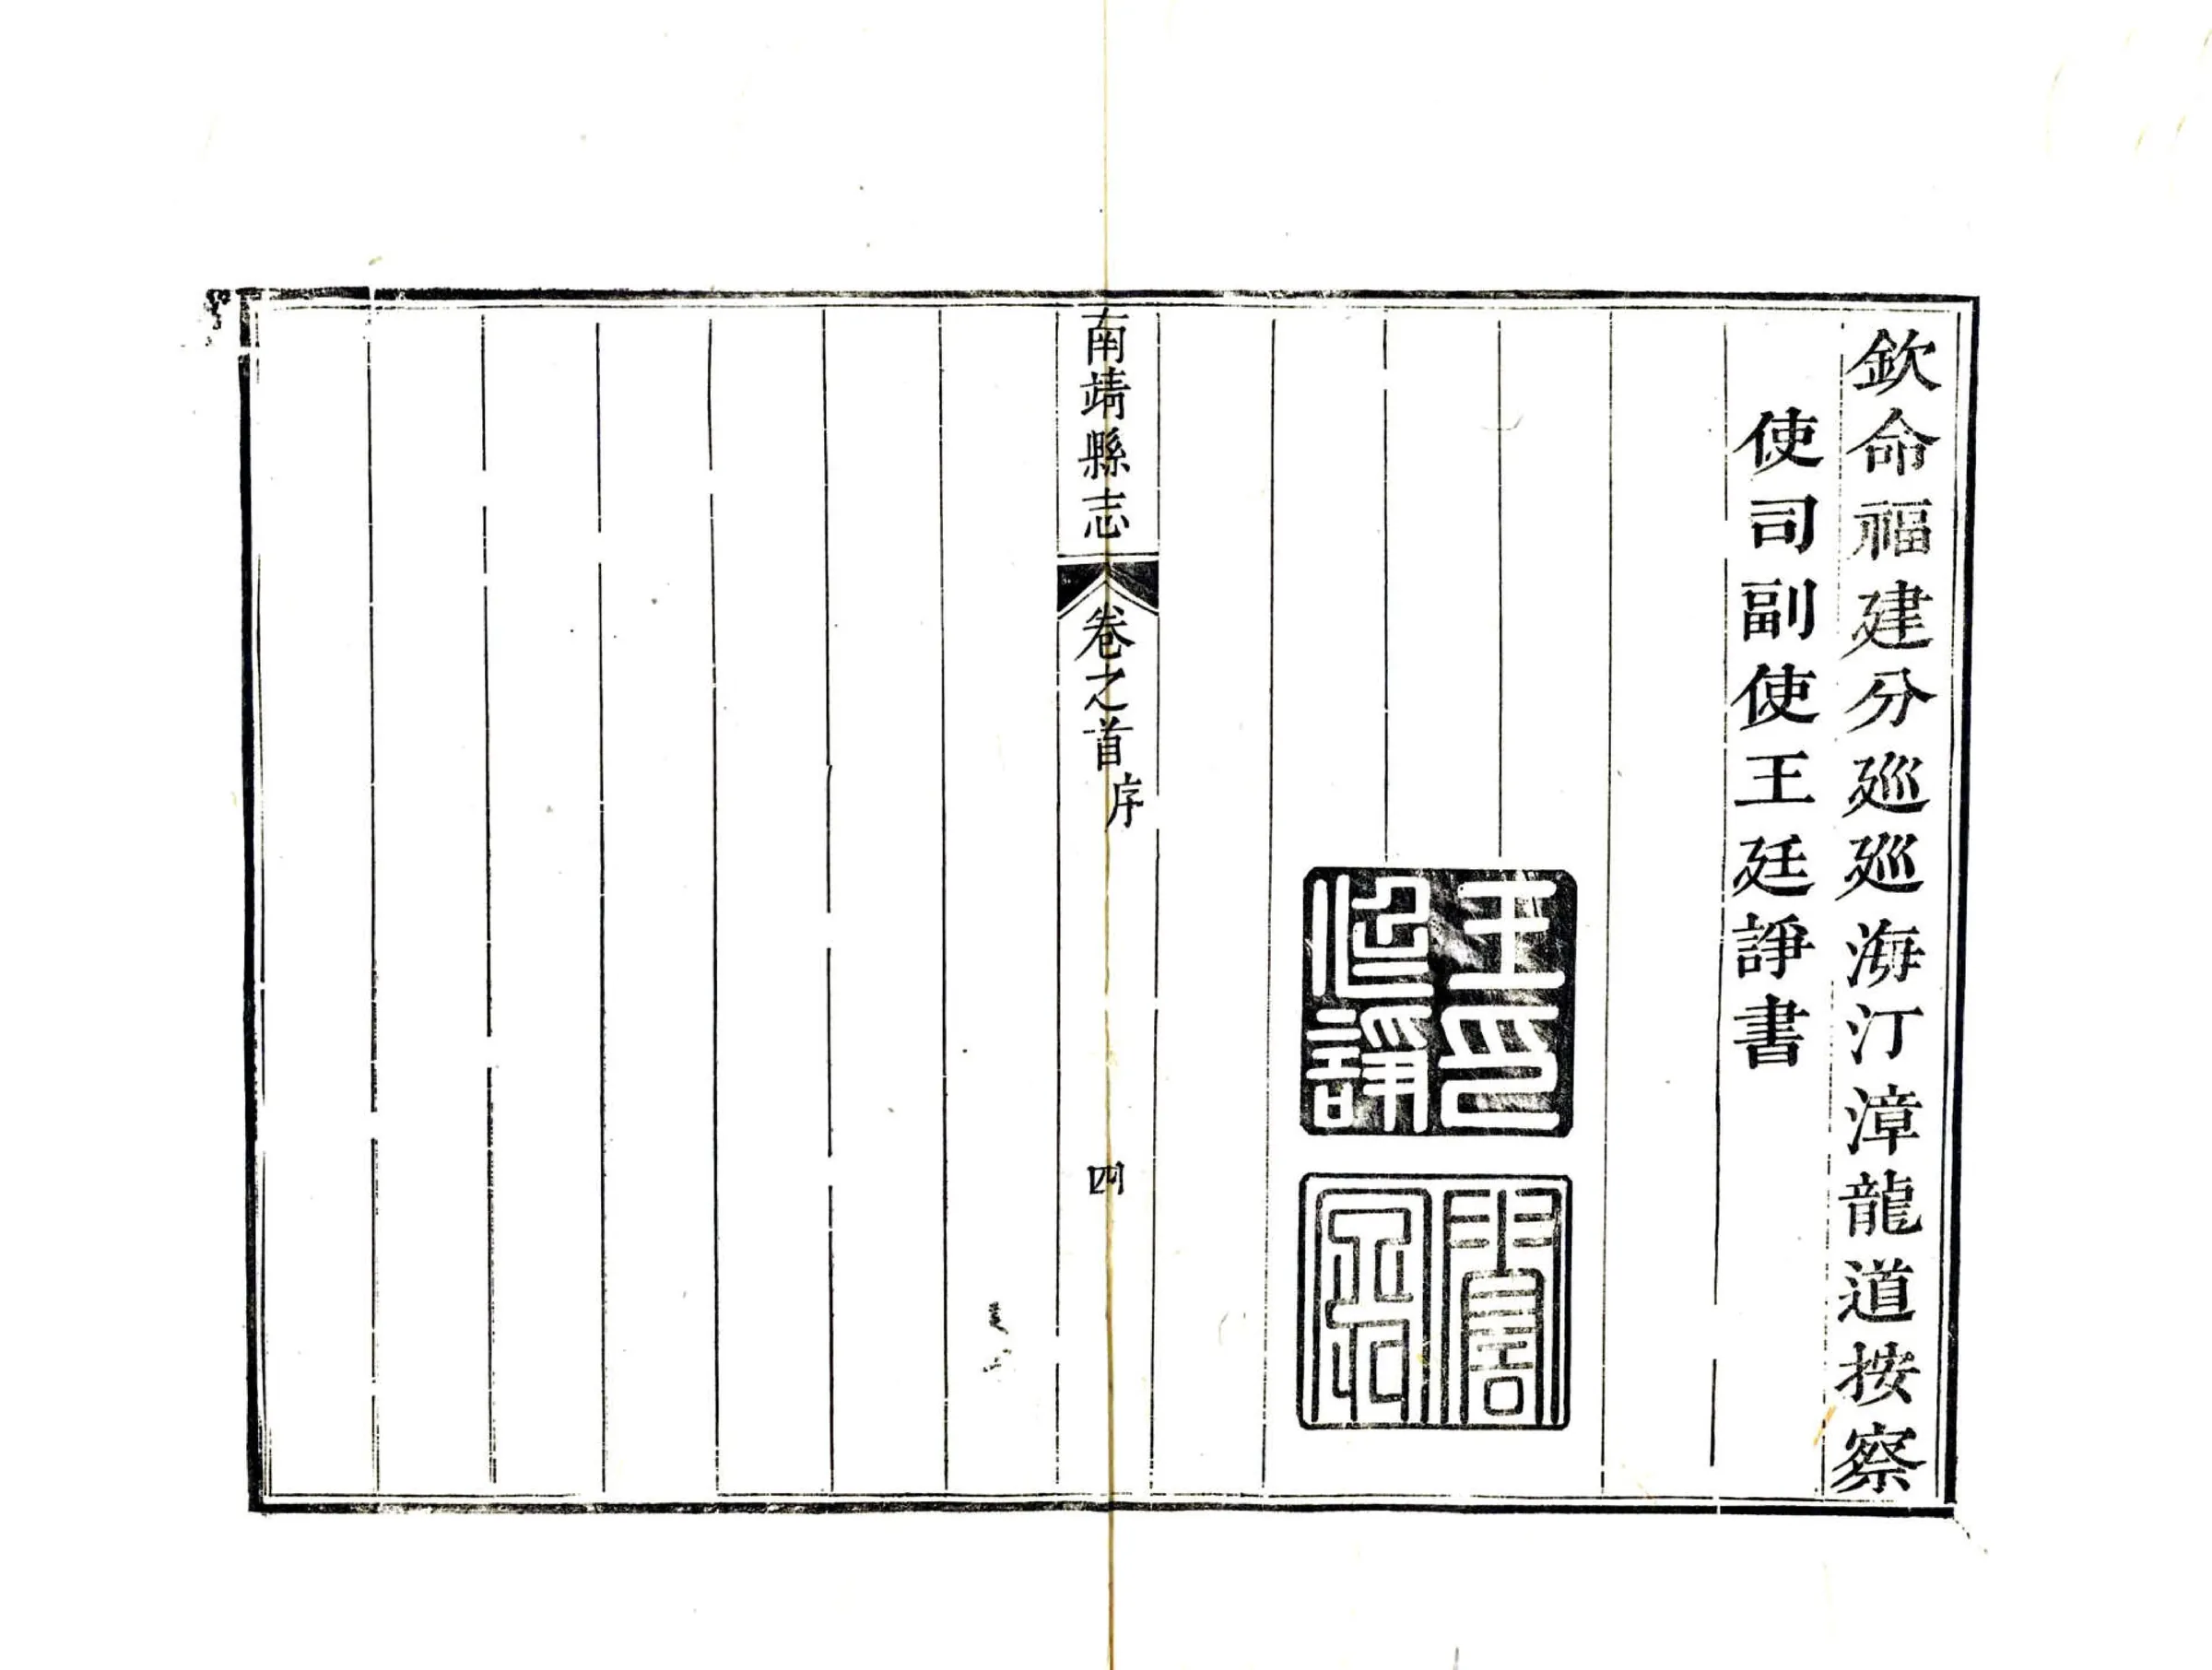 欽命福建分廵廵海汀漳龍道按察
使司副使王廷諍書
王印
廷諍
南靖縣志
卷之首
序
四